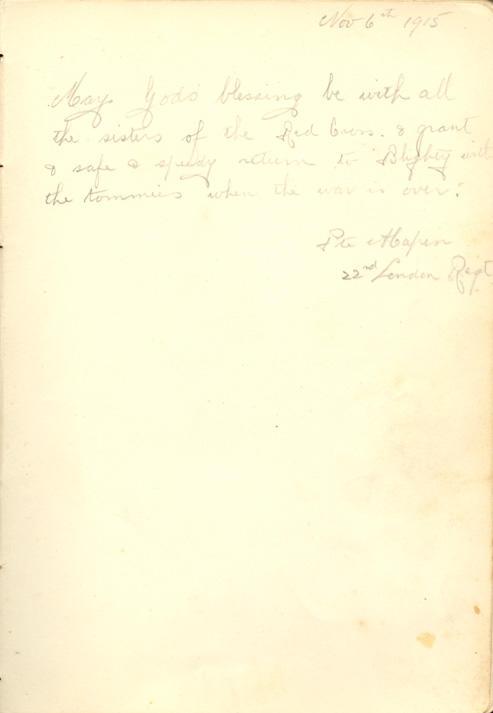 Nov 6th 1915
May God's blessing be with all
the sisters of the Red Cross. & grant
a safe & speedy return to Blighty with
the tommies when the war is over.
Pte
22nd London Regt